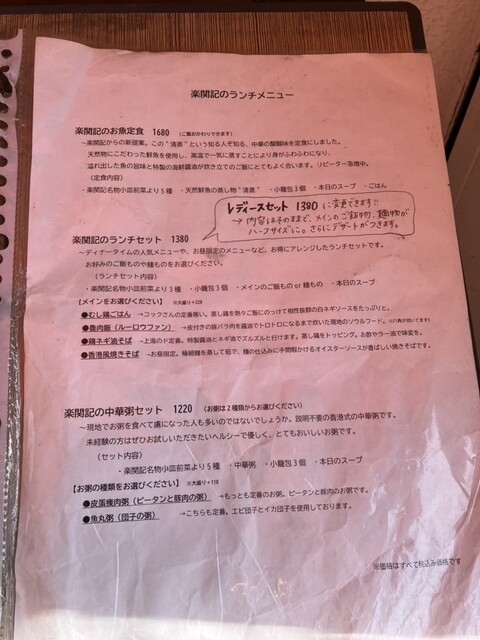 楽関記のランチメニュー
楽関記のお魚定食 1680 （ご飯おかわりできます）
～楽関記からの新提案。この"清蒸"という知る人ぞ知る、中華の醍醐味を定食にしました。
天然物にこだわった鮮魚を使用し、高温で一気に蒸すことにより身がふわふわになり、
溢れ出した魚の旨味と特製の海鮮醤油が炊き立てのご飯にとてもよく合います。リピーター急増中。
（定食内容）
・楽関記名物小皿前菜より５種 ・天然鮮魚の蒸し物"清蒸" ・小籠包３個 ・本日のスープ ・ごはん
レディースセット 1380 に変更できます!!
→ 内容はそのままで、メインのご飯物、麺物が
ハーフサイズに。さらにデザートがつきます。
楽関記のランチセット 1380
～ディナータイムの人気メニューや、お昼限定のメニューなど。お得にアレンジしたランチセットです。
お好みのご飯ものや麺ものをお選びください。
（ランチセット内容）
・楽関記名物小皿前菜より３種 ・小籠包３個 ・メインのご飯もの or 麺もの ・本日のスープ
【メインをお選びください】 ※大盛り＋220
●むし鶏ごはん →コックさんの定番賄い。蒸し鶏を熱々ご飯にのっけて相性抜群の白ネギソースをたっぷりと。
●魯肉飯（ルーロウファン） →皮付きの豚バラ肉を醤油でトロトロになるまで炊いた現地のソウルフード。※八角が効いてます
●鶏ネギ油そば →上海のド定番。特製醤油とネギ油でズルズルと行けます。蒸し鶏をトッピング。お酢やラー油で味変を。
●香港風焼きそば →お昼限定。極細麺を蒸して茹で、麺の仕込みに手間暇かけるオイスターソースが香ばしい焼きそばです。
楽関記の中華粥セット 1220 （お粥は２種類からお選びください）
～現地でお粥を食べて虜になった人も多いのではないでしょうか。説明不要の香港式の中華粥です。
未経験の方はぜひお試しいただきたいヘルシーで優しく、とてもおいしいお粥です。
（セット内容）
・楽関記名物小皿前菜より５種 ・中華粥 ・小籠包３個 ・本日のスープ
【お粥の種類をお選びください】 ※大盛り＋110
●皮蛋痩肉粥（ピータンと豚肉の粥） →もっとも定番のお粥。ピータンと豚肉のお粥です。
●魚丸粥（団子の粥） →こちらも定番。エビ団子とイカ団子を使用しております。
※価格はすべて税込み価格です